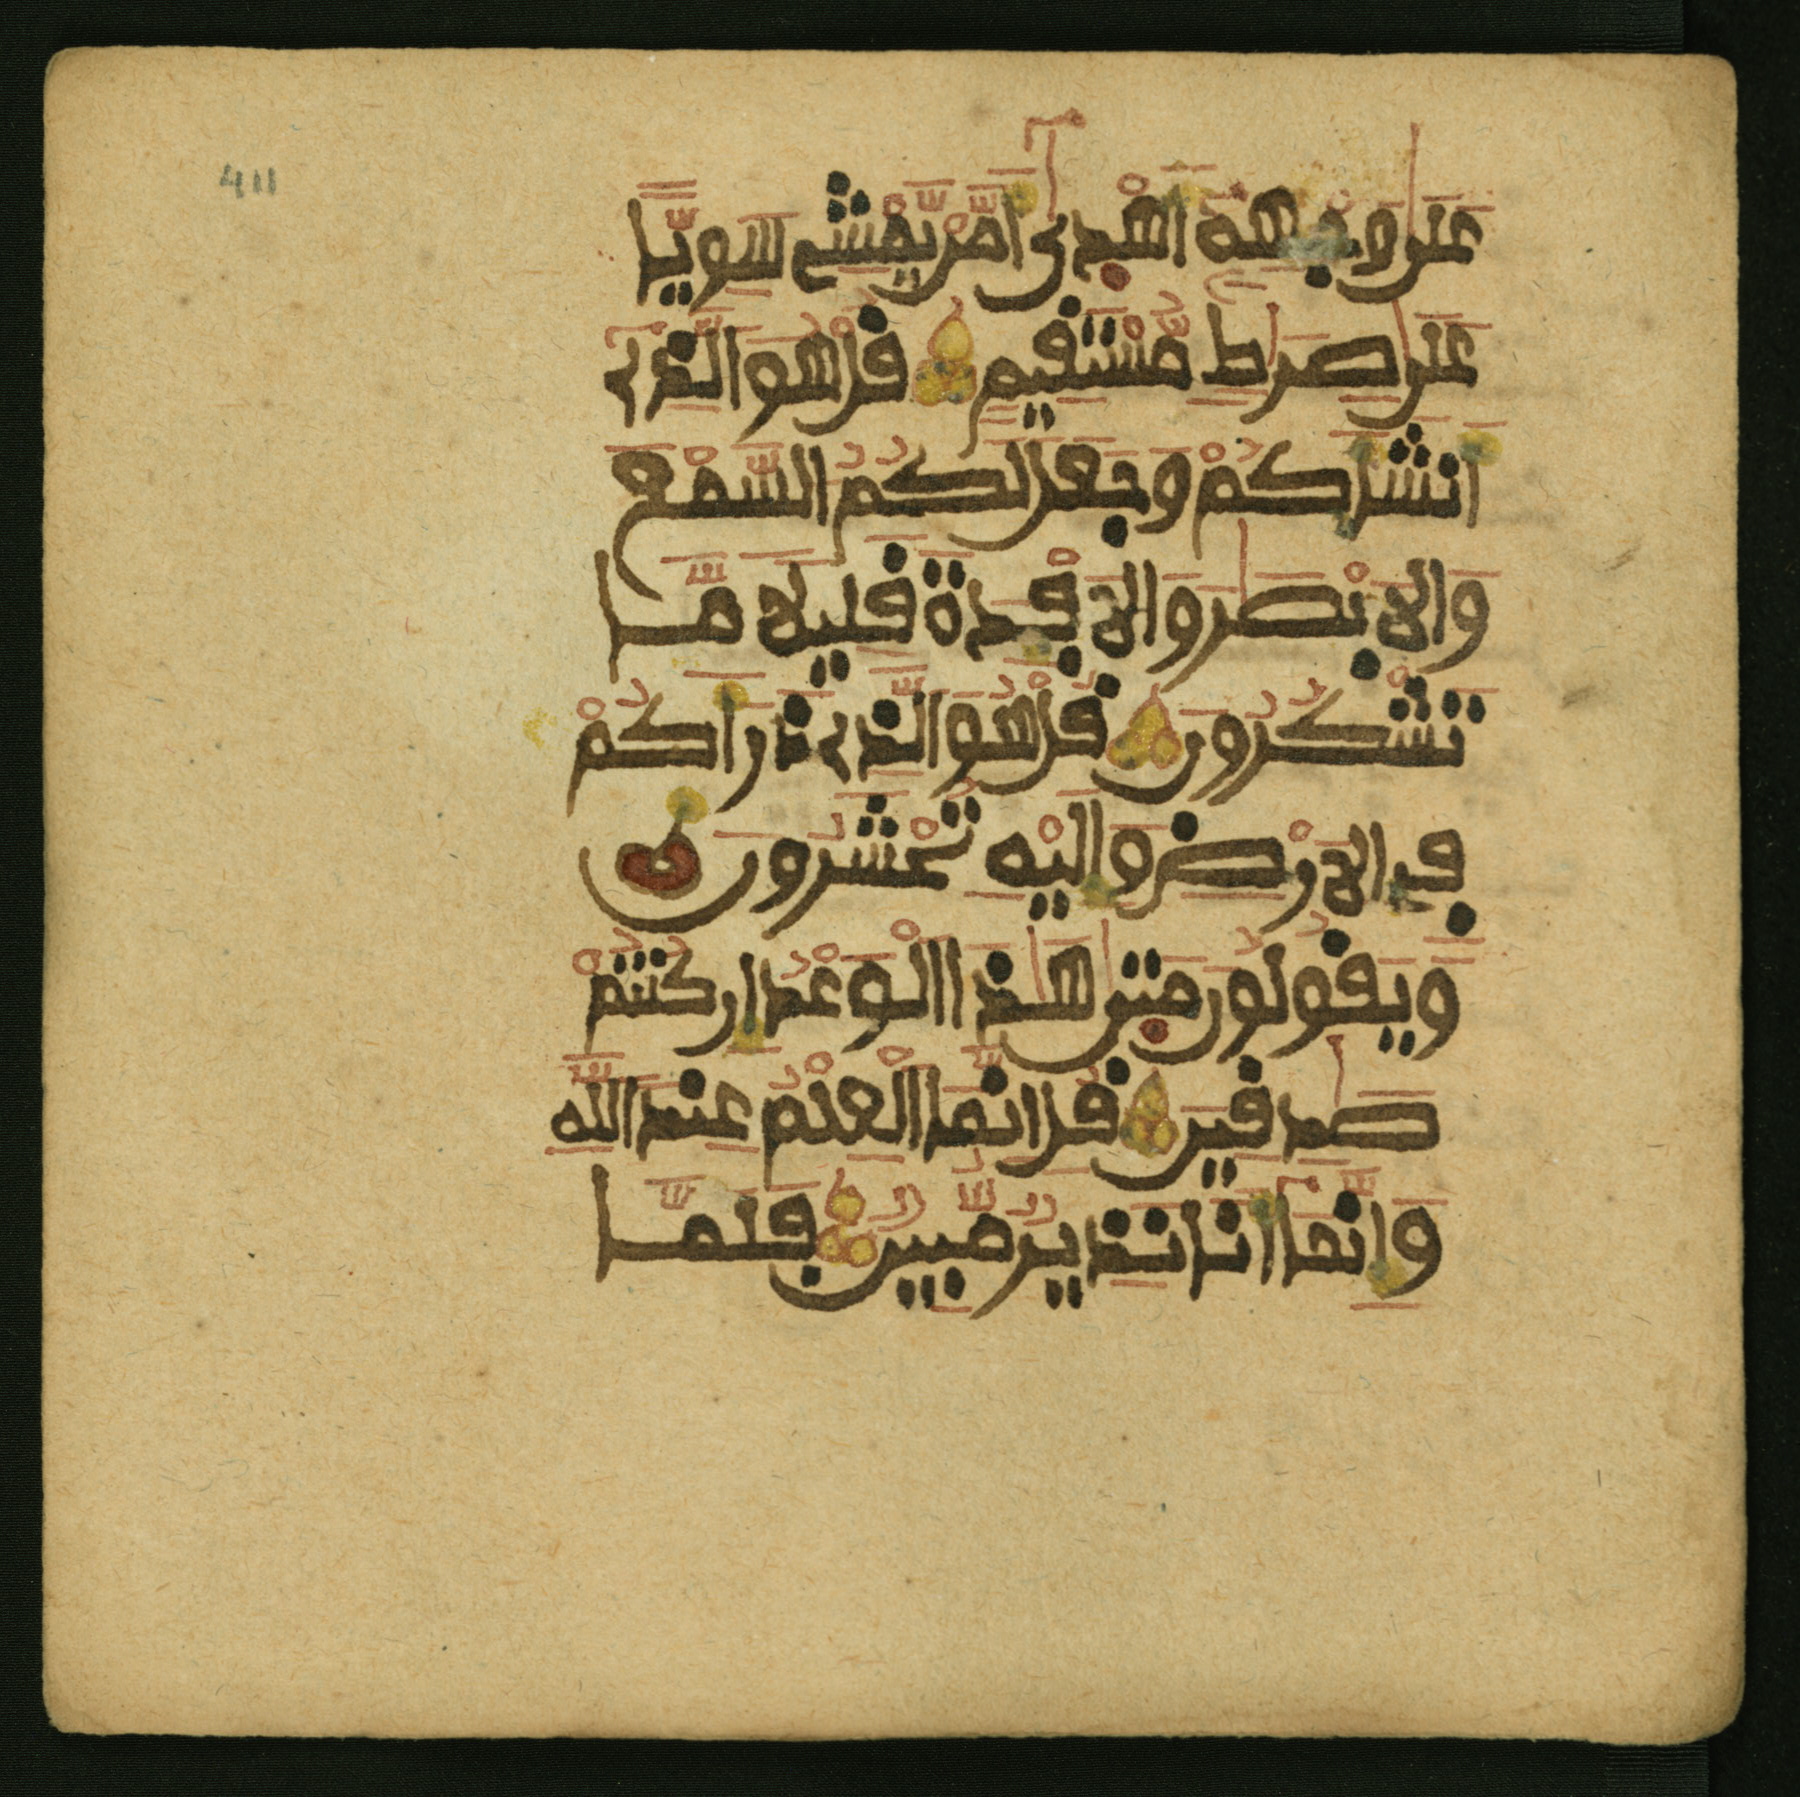 411
عَلَىٰ وَجْهِهِ أَهْدَىٰ أَمَّنْ يَّمْشِي سَوِيًّا
عَلَىٰ صِرَٰطٍ مُّسْتَقِيمٍ قُلْ هُوَ الَّذِي
أَنشَأَكُمْ وَجَعَلَ لَكُمُ السَّمْعَ
وَالْأَبْصَٰرَ وَالْأَفْـِٕدَةَ قَلِيلًا مَّا
تَشْكُرُونَ قُلْ هُوَ الَّذِي ذَرَأَكُمْ
فِي الْأَرْضِ وَإِلَيْهِ تُحْشَرُونَ
وَيَقُولُونَ مَتَىٰ هَٰذَا الْوَعْدُ إِن كُنتُمْ
صَٰدِقِينَ قُلْ إِنَّمَا الْعِلْمُ عِندَ اللَّهِ
وَإِنَّمَا أَنَا نَذِيرٌ مُّبِينٌ فَلَمَّا